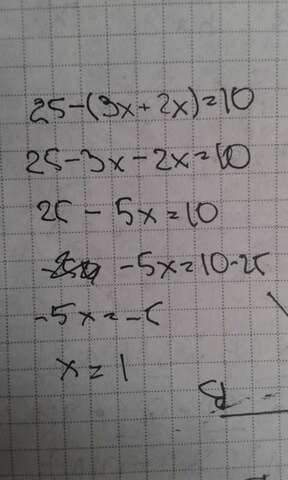 25-(3x+2x)=10
25-3x-2x=10
25-5x=10
-5x=10-25
-5x=-5
x=1